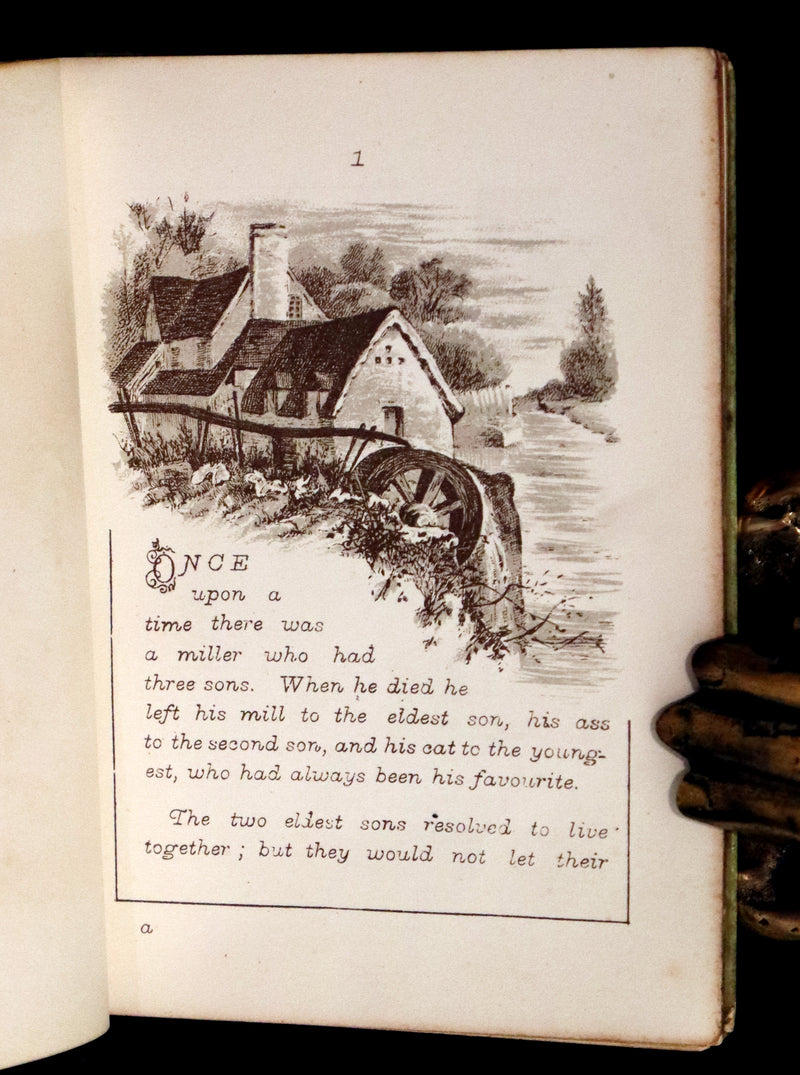 1
ONCE
upon a
time there was
a miller who had
three sons. When he died he
left his mill to the eldest son, his ass
to the second son, and his cat to the young-
est, who had always been his favourite.
The two eldest sons resolved to live
together; but they would not let their
a